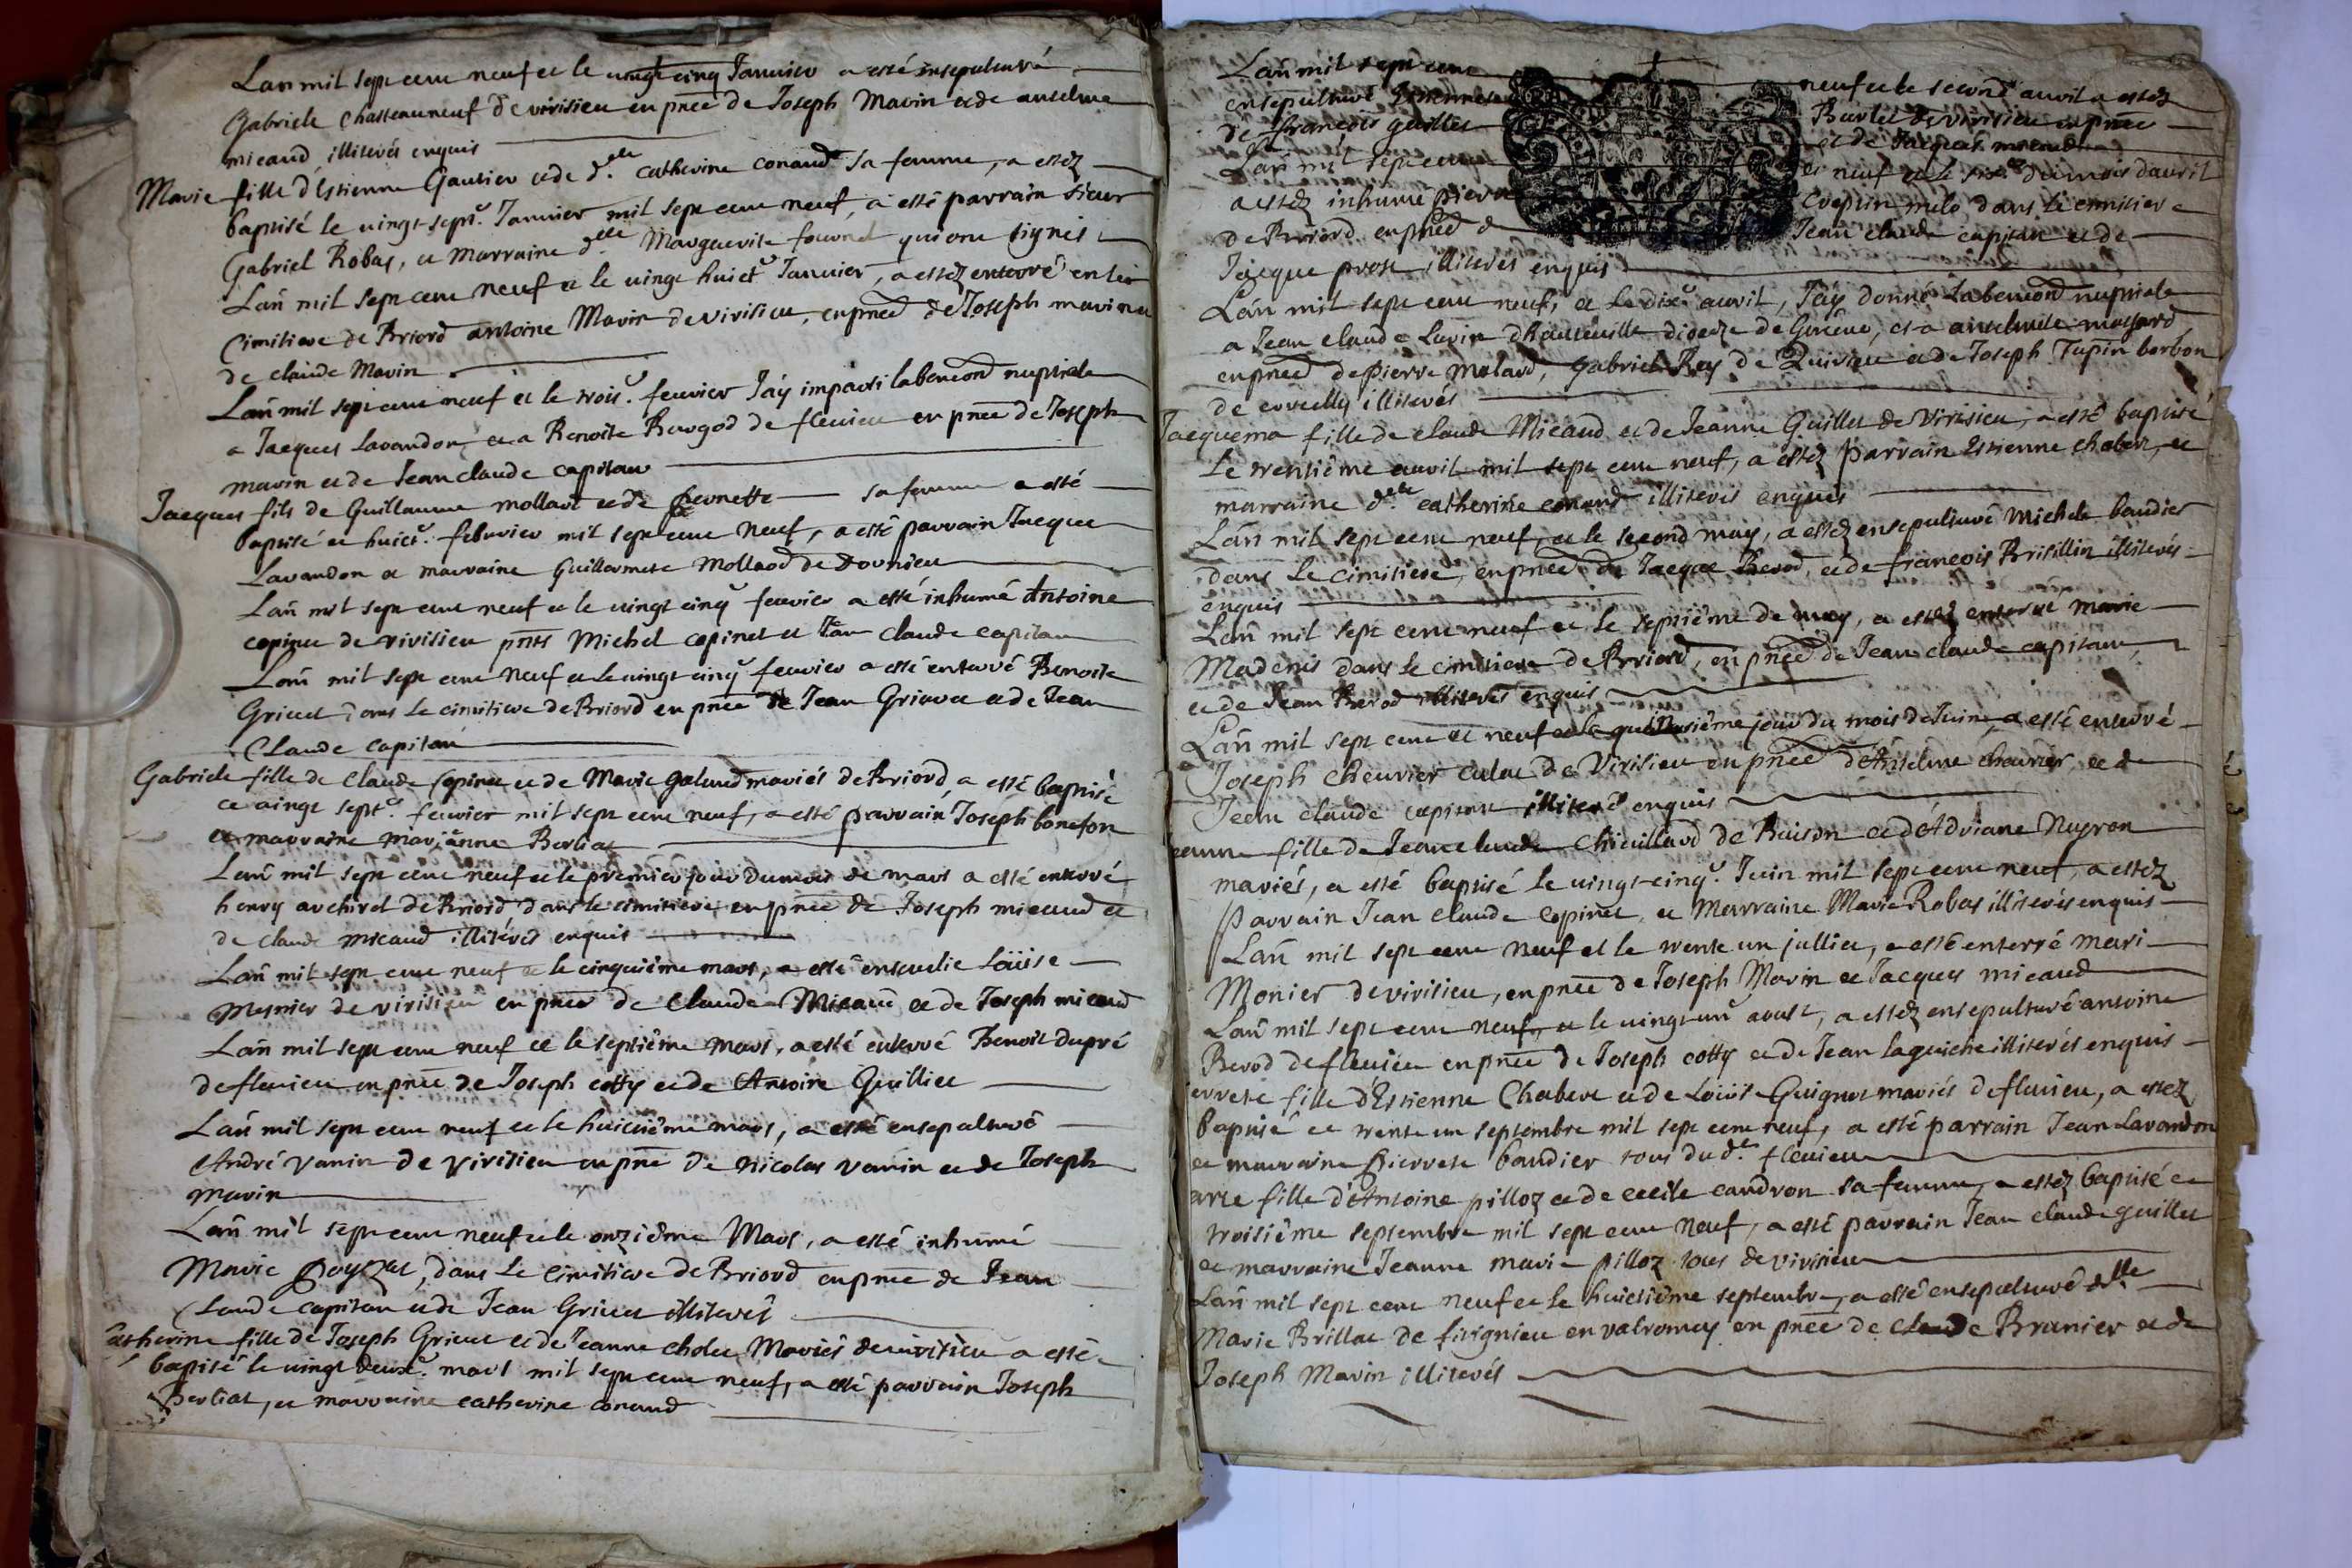 Lan mil sept cent neuf et le vingt cinq Janvier a esté insepulturé
Gabriele Chasteauneuf de virisieu en pnce de Joseph Marin et de anselme
micaud illiterés enquis
Marie fille d'Estienne Gautier et de d.elle catherine conand sa femme, a estez
baptisé le vingt sept.e Janvier mil sept cent neuf, a esté parrain sieur
Gabriel Robas, et Marraine d.elle Marguerite fournet qui ont signés
Lan mil sept cent neuf et le vingt huict.e Janvier, a estez enterré en leur
Cimitiere de Briord antoine Marin de virisieu, en pnce de Joseph marin et
de claude Marin
Lan mil sept cent neuf et le trois.e fevrier J'ay imparti la benond nuptiale
a Jacques Lavandon, et a Benoite Burgod de fleurieu en pnce de Joseph
marin et de Jean claude capitan
Jacques fils de Guillaume mollard et de pernette sa femme a esté
baptisé ce huict.e febvrier mil sept cent neuf, a esté parrain Jacques
Lavandon et marraine Guillermete Mollard de Dornieu
Lan mil sept cent neuf et le vingt cinq.e fevrier a esté inhumé Antoine
copinet de virisieu pnts Michel copinet et Jean claude capitan
Lan mil sept cent neuf et le vingt cinq.e fevrier a esté enterré Benoite
Grivet dans le cimitiere de Briord en pnce de Jean Grivet et de Jean
Claude capitan
Gabriele fille de Claude Copinet et de Marie galand mariés de Briord, a esté baptisé
ce vingt sept.e fevrier mil sept cent neuf, a esté parrain Joseph bonefon
et marraine marjanne Berliat
Lan mil sept cent neuf et le premier jour du mois de mars a esté enterré
henry archiret de Briord, dans le cimitiere, en pnce de Joseph micaud et
de claude micaud illiterés enquis
Lan mil sept cent neuf et le cinquième mars, a esté ensevelie Loüise
Mesnier de virisieu en pnce de Claude Micaud et de Joseph micaud
Lan mil sept cent neuf et le septième Mars, a esté enterré Benoit dupré
de fleurieu en pnce de Joseph cotty et de Antoine Guilliet
Lan mil sept cent neuf et le huictième mars, a esté ensepulturé
André Vanin de Virisieu en pnce de nicolas vanin et de Joseph
marin
Lan mil sept cent neuf et le onzième Mars, a esté inhumé
Marie Poyzat, dans le Cimitiere de Briord en pnce de Jean
Claude capitan et de Jean Grivet illiterés
Catherine fille de Joseph Grivet et de Jeanne cholet Mariés de virisieu a esté
baptisé le vingt deux.e mars mil sept cent neuf, a esté parrain Joseph
Berliat, et marraine catherine conand
Lan mil sept cent neuf et le second avril a estez
ensepulturé Estiennete Burlet de virisieu en pnce
de francois guillet et de Jacques micaud
Lan mil sept cent et neuf et le six.e du mois d'avril
a estez inhumé pierre Crepin milo dans le cimitiere
de Briord en pnce de Jean claude capitan et de
Jacque prost illiterés enquis
Lan mil sept cent neuf, et le dix.e avril, J'ay donné la benond nuptiale
a Jean claude Lurin d'hauteville diocese de Genéve, et a anselmete mollard
en pnce de pierre Molard, Gabriel Rey de Quirieu et de Joseph Tupin barbon
de creuilly illiterés
Jacquema fille de claude Micaud et de Jeanne Guillet de Virisieu, a esté baptisé
le trentième avril mil sept cent neuf, a estez parrain Estienne chabert, et
marraine d.elle catherine conand illiterés enquis
Lan mil sept cent neuf, et le second may, a estez ensepulturé Michele baudier
dans le cimitiere, en pnce de Jacque Berod, et de francois Brisillin illiterés
enquis
Lan mil sept cent neuf et le septième de may, a estez enterré Marie
Madenis dans le cimitiere de Briord, en pnce de Jean claude capitan,
et de Jean Berod illiterés enquis
Lan mil sept cent et neuf et le quinzième jour du mois de Juin, a esté enterré
Joseph chevrier culat de Virisieu en pnce d'Anselme chevrier et de
Jean claude capitan illiterés enquis
eanne fille de Jean claude Chivillard de Buison et d'Adriane Neyron
mariés, a esté baptisé le vingt-cinq.e Juin mil sept cent neuf, a estez
Parrain Jean claude Copinet, et Marraine Marie Robas illiterés enquis
Lan mil sept cent neuf et le trente un jullict, a esté enterré Mari
Monier de virisieu, en pnce de Joseph Marin et Jacques micaud
Lan mil sept cent neuf, et le vingt un.e aoust, a estez ensepulturé antoine
Berod de fleurieu en pnce de Joseph cotty et de Jean laguiche illiterés enquis
ierrete fille d'Estienne Chabert et de Loüise Guignet mariés de fleurieu, a estez
baptisé ce trente un septembre mil sept cent neuf, a esté parrain Jean Lavandon
et marraine Pierrete baudier tous dud.t fleurieu
arie fille d'Antoine pilloz et de cecile candron sa femme, a estez baptisé ce
troisième septembre mil sept cent neuf, a esté parrain Jean claude guillet
et marraine Jeanne marie pilloz tous de virisieu
Lan mil sept cent neuf et le huictième septembre, a esté ensepulturé d.elle
Marie Brillat de fitignieu en valromey en pnce de claude Branier et de
Joseph Marin illiterés